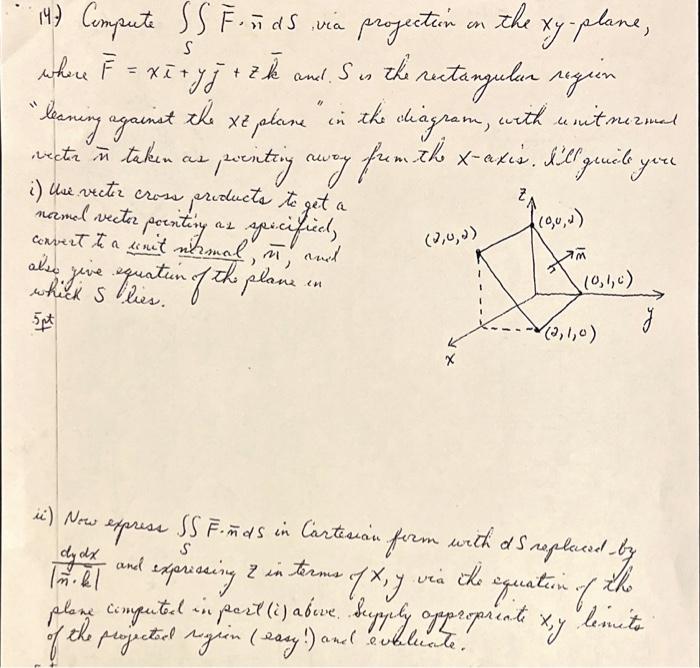 14.) Compute ∫∫ F̄·n̄ dS via projection on the xy-plane,
S
where F̄ = xī + yj̄ + zk̄ and S is the rectangular region
"leaning against the xz plane" in the diagram, with unit normal
vector n̄ taken as pointing away from the x-axis. I'll guide you
i) Use vector cross products to get a
normal vector pointing as specified,
convert to a unit normal, n̄, and
also give equation of the plane in
which S lies.
5pt
z
(0,0,2)
(2,0,2)
n̄
(0,1,0)
y
(2,1,0)
x
ii) Now express ∫∫ F̄·n̄ dS in Cartesian form with dS replaced by
S
dydx / |n̄·k̄| and expressing z in terms of x, y via the equation of the
plane computed in part (i) above. Supply appropriate x,y limits
of the projected region (easy!) and evaluate.